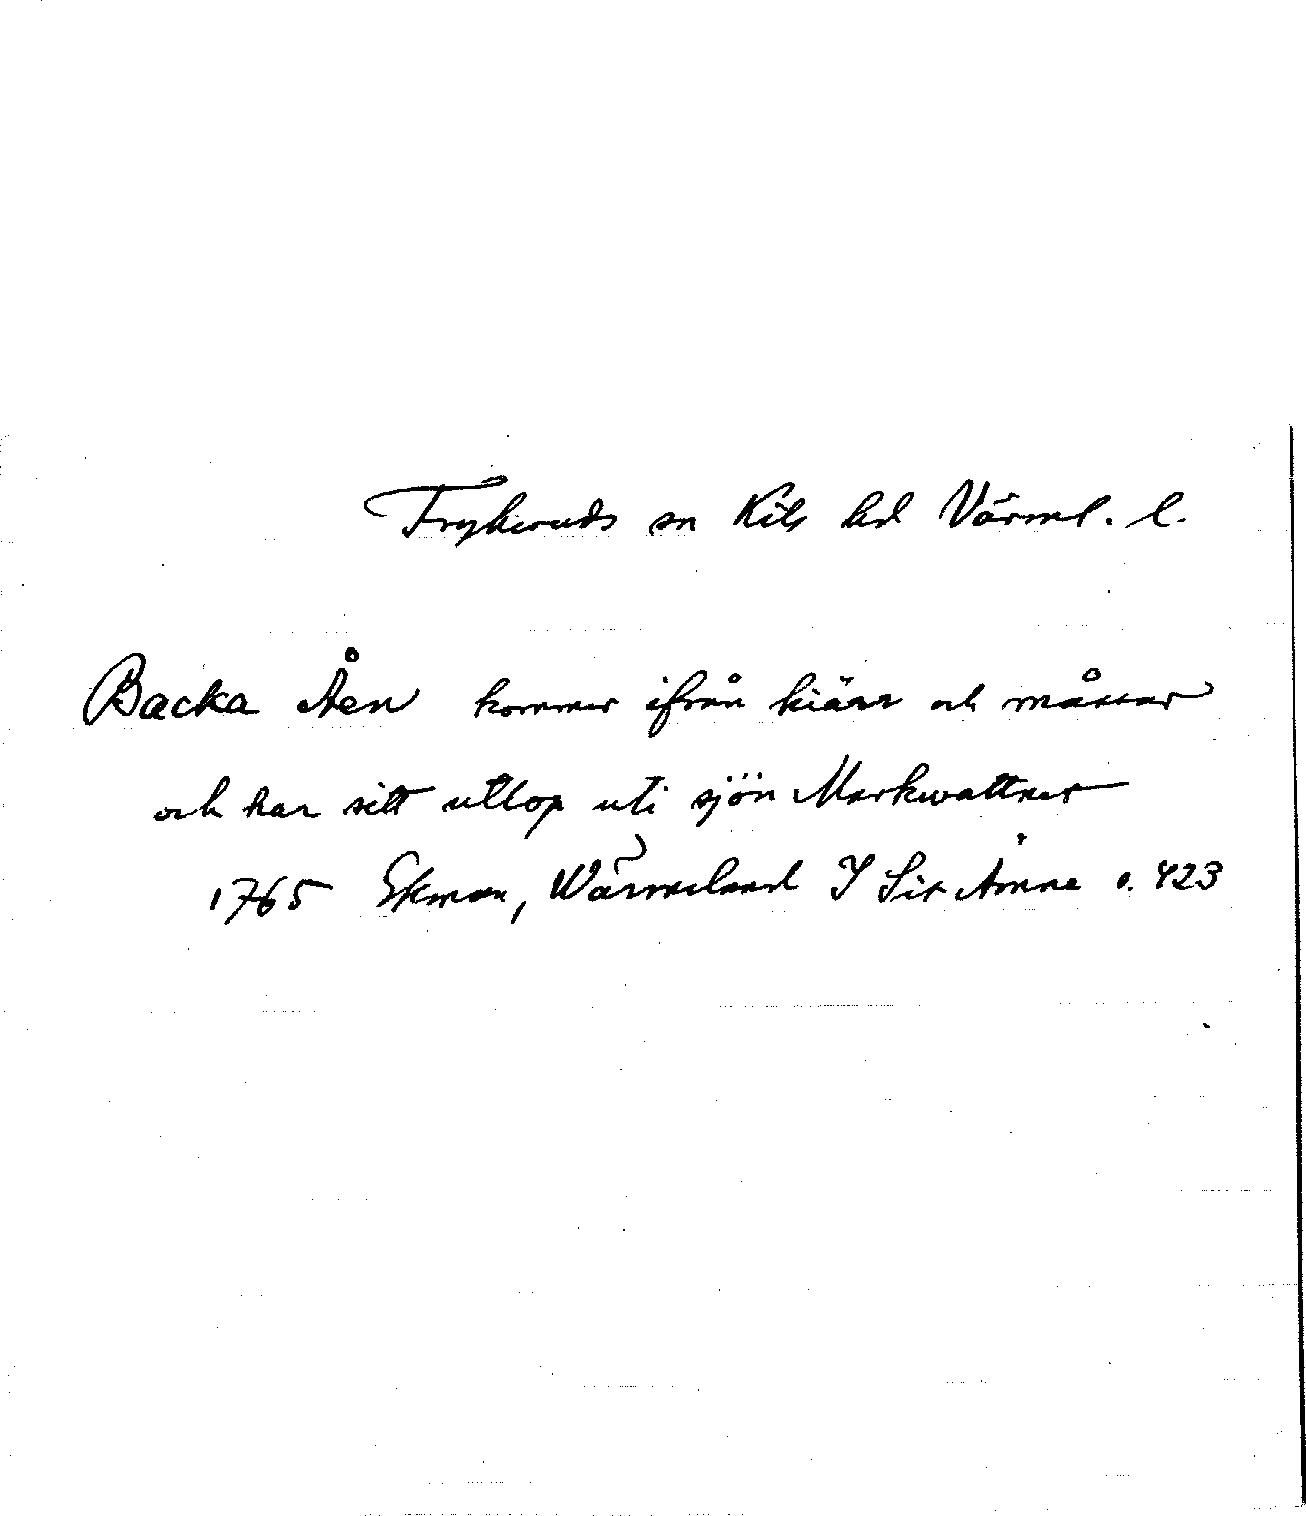 Frykeruds sn Kils hd Värml. l.
Backa Åen kommer ifrån kiärr och måssar
och har sitt utlop uti sjön Markwattnet
1765 Ekman, Wärmeland I Sit Ämne s. 423